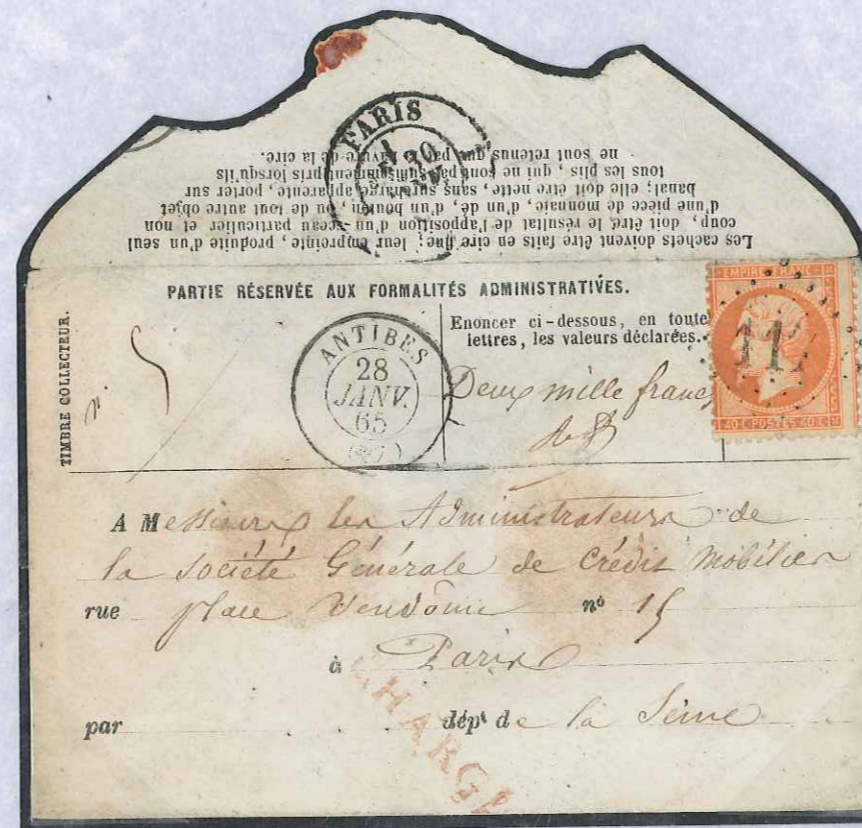 PARIS
30
Les cachets doivent être faits en cire fine; leur empreinte, produite d'un seul
coup, doit être le résultat de l'apposition d'un sceau particulier et non
d'une pièce de monnaie, d'un dé, d'un bouton, ou de tout autre objet
banal; elle doit être nette, sans surcharge apparente, porter sur
tous les plis, qui ne sont pas suffisamment pris lorsqu'ils
ne sont retenus que par la bavure de la cire.
PARTIE RÉSERVÉE AUX FORMALITÉS ADMINISTRATIVES.
TIMBRE COLLECTEUR.
n° 5
ANTIBES
28
JANV.
65
(87)
Enoncer ci-dessous, en toute
lettres, les valeurs déclarées.
Deux mille francs
EMPIRE FRANC
11
40 C POSTES 40 C
A Messieurs les Administrateurs de
la société Générale de Crédit Mobilier
rue place Vendôme n° 15
à Paris
CHARGÉ
par dépt de la Seine